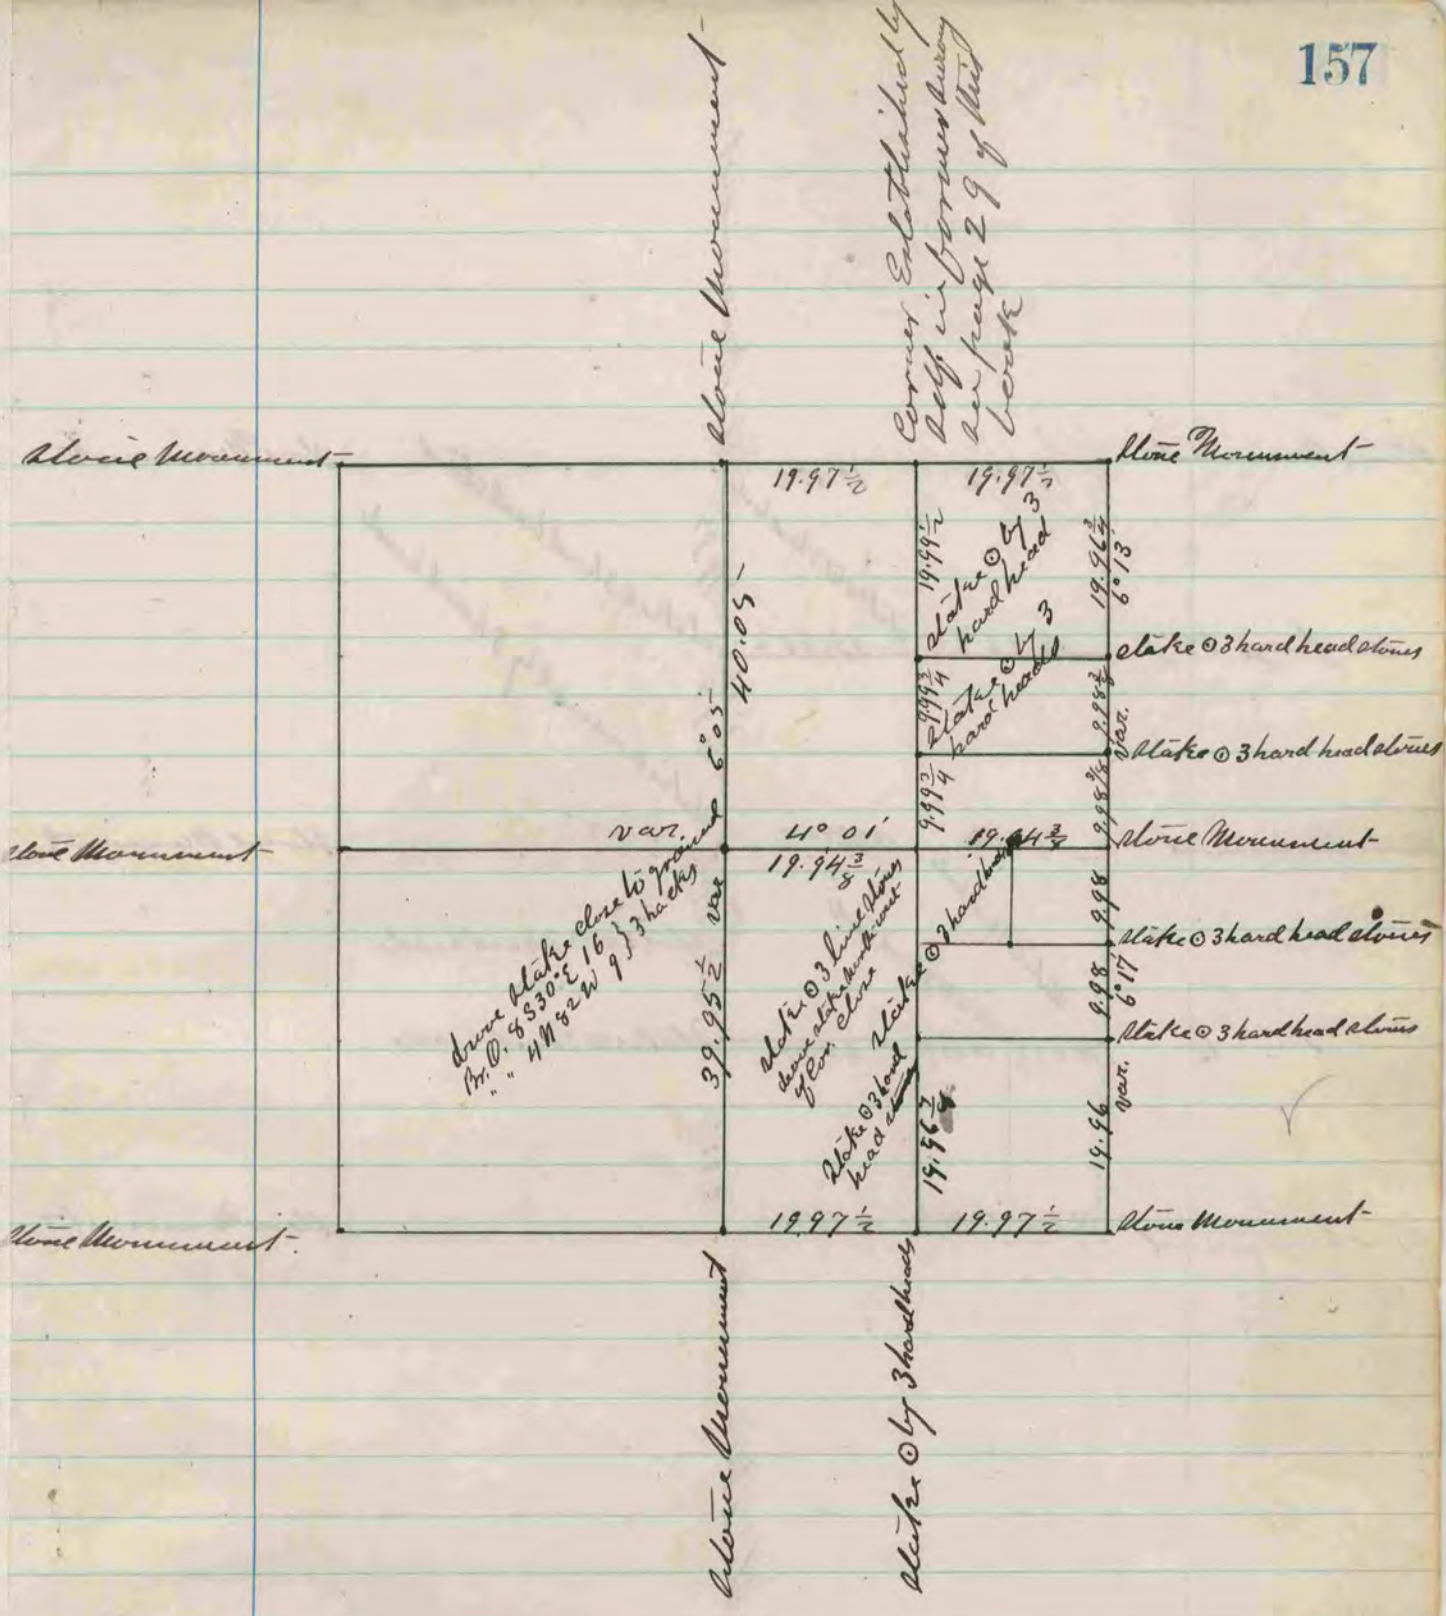 157
Stone Monument
Corner Established by
Self in former survey
see page 29 of this
book
Stone Monument
Stone Monument
19.97 1/2
19.97 1/2
19.99 1/2
Stake ⊙ by 3
hard head
19.96 3/4
6° 13
40.05
Stake ⊙ 3 hard head stones
9.99 3/4
Stake ⊙ by 3
hard heads
9.98 3/8
var.
Stake ⊙ 3 hard head stones
6° 05'
9.99 3/4
9.98 3/8
var.
4° 01'
19.94 3/8
Stone Monument
Stone Monument
19.94 3/8
drove stake close to ground
Br. O. 8 S30°E 16 } 3 hacks
" " 4 N 82 W 9 }
var
39.95 1/2
Stake ⊙ 3 lime stones
drove stake north west
of cor. close
Stake ⊙ 3 hard heads
9.98
Stake ⊙ 3 hard head stones
9.98
6° 17'
Stake ⊙ 3 hard head stones
Stake ⊙ 3 hard
head stones
19.96 7/8
19.96
var.
19.97 1/2
19.97 1/2
Stone Monument
Stone Monument.
Stone Monument
Stake ⊙ by 3 hardheads